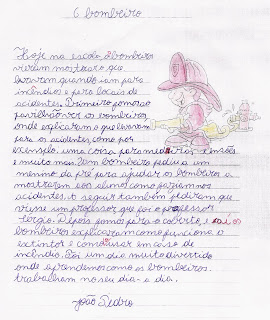 O bombeiro
Hoje na escola, o bombeiro
vieram mostrar o que
levavam quando iam para
incêndios e para locais de
acidentes. Primeiro fomos ao
pavilhão ver os bombeiros
onde explicaram o que levavam
para os acidentes, como por
exemplo, uma coisa para medir os
e muito mais. Um bombeiro pediu a um
menino da pré para ajudar os bombeiros a
mostrarem aos alunos como fazíamos nos
acidentes. A seguir também pediram que
viesse um professor que foi o professor
Tiago. Depois fomos para o coberto, e aí os
bombeiros explicaram como funciona o
extintor e como usar em caso de
incêndio. Foi um dia muito divertido
onde aprendemos como os bombeiros
trabalham no seu dia-a-dia.
João Pedro